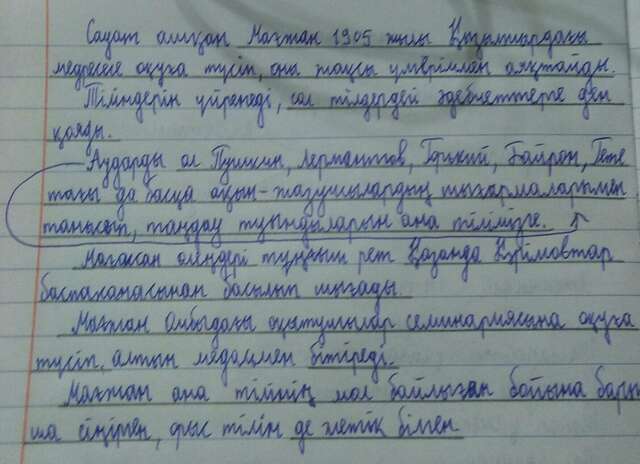 Сауат ашқан Мағжан 1905 жылы Қызылжардағы
медресеге оқуға түсіп, оны жақсы үлгеріммен аяқтайды.
Тілдерін үйренеді, сол тілдердегі әдебиеттерге ден
қояды.
Аударды ол Пушкин, Лермонтов, Горький, Байрон, Гете
тағы да басқа ақын-жазушылардың шығармаларымен
танысып, таңдау туындыларын ана тілімізге.
Мағжан өлеңдері тұңғыш рет Қазанда Кәрімовтар
баспаханасынан басылып шығады.
Мағжан Омбыдағы оқытушылар семинариясына оқуға
түсіп, алтын медальмен бітіреді.
Мағжан ана тілінің мол байлығын бойына бары
ша сіңірген, орыс тілін де жетік білген.